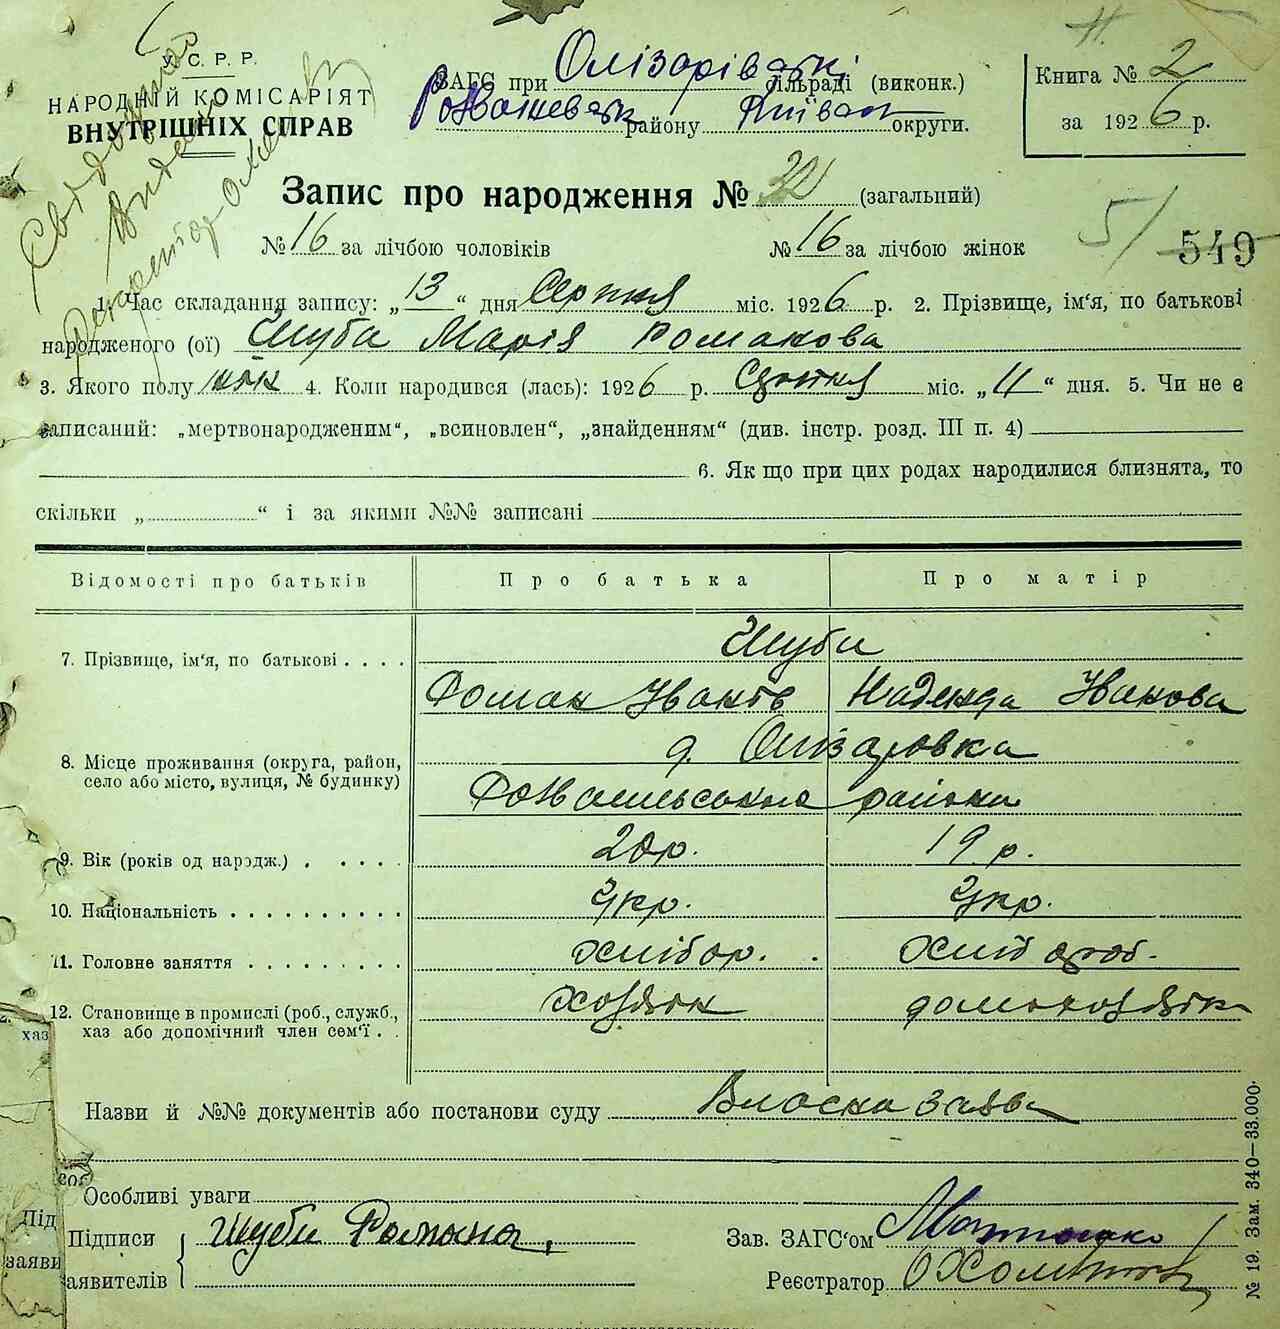 У. С. Р. Р.
НАРОДНІЙ КОМІСАРІЯТ
ВНУТРІШНІХ СПРАВ
ЗАГС при Олізарівській сільраді (виконк.)
району округи.
Книга № 2
за 1926 р.
Запис про народження № 32 (загальний)
№ 16 за лічбою чоловіків № 16 за лічбою жінок
51 549
1. Час складання запису: „13“ дня Серпня міс. 1926 р. 2. Прізвище, ім'я, по батькові
народженого (ої) Шуба Марія Романова
3. Якого полу жін 4. Коли народився (лась): 1926 р. Серпня міс. „11“ дня. 5. Чи не є
записаний: „мертвонародженим“, „всиновлен“, „знайденням“ (див. інстр. розд. III п. 4)
6. Як що при цих родах народилися близнята, то
скільки „ “ і за якими №№ записані
Відомості про батьків Про батька Про матір
Шуби
7. Прізвище, ім'я, по батькові
Роман Іванів Надежда Іванова
8. Місце проживання (округа, район,
село або місто, вулиця, № будинку)
д. Олізаровка
району
9. Вік (років од народж.) 20 р. 19 р.
10. Національність Укр. Укр.
11. Головне заняття хлібор. хлібороб.
12. Становище в промислі (роб., служб.,
хаз або допомічний член сем'ї
хозяїн домохозяїн
Назви й №№ документів або постанови суду Власна заява
Особливі уваги
Підписи Шуби Романа,
заявителів
Зав. ЗАГС'ом
Реєстратор
хаз
Під
заяви
№ 19. Зам. 340—33.000.